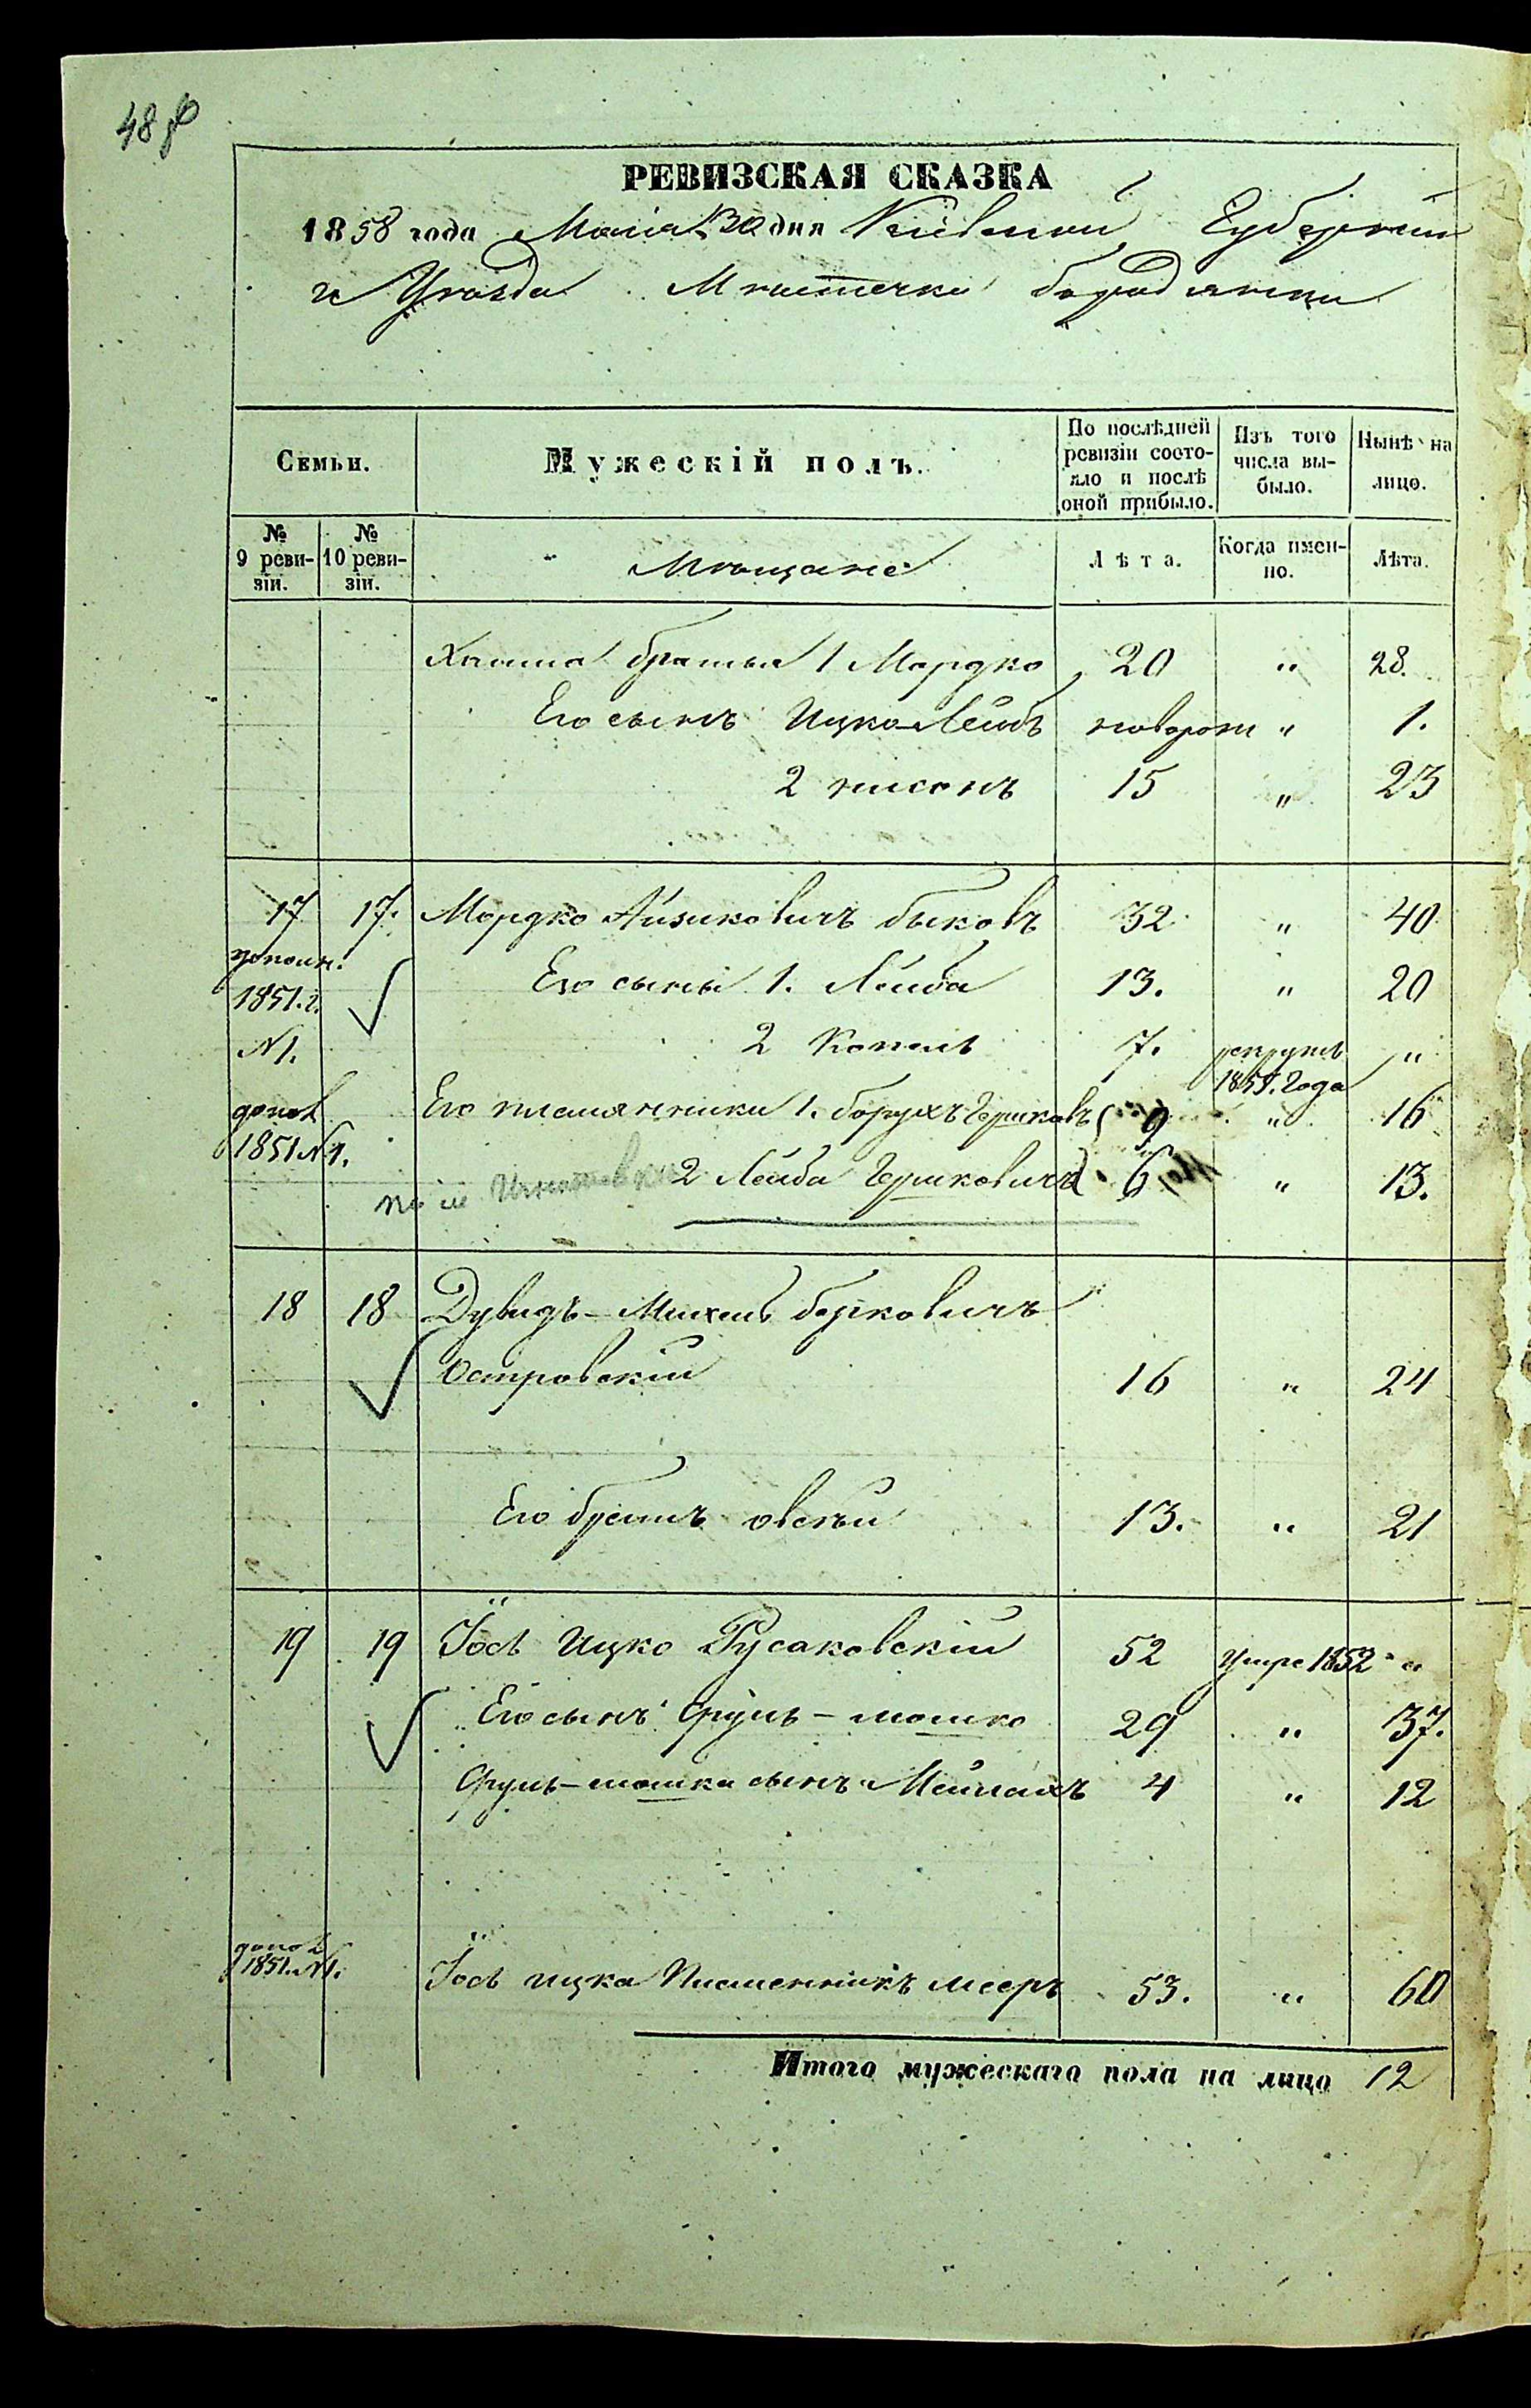 48
РЕВИЗСКАЯ СКАЗКА
1858 года Маія 30 дня Кіевской Губерніи
и Уѣзда Мѣстечка бородянки
Семьи.
Мужескій полъ.
По послѣдней ревизіи состояло и послѣ оной прибыло.
Изъ того числа выбыло.
Нынѣ на лицо.
№ 9 ревизіи.
№ 10 ревизіи.
Мѣщане
Лѣта.
Когда именно.
Лѣта.
Хаима братья 1 Мордко 20 " 28.
Его сынъ Ицко-Лейбъ новорож " 1.
2 нисонъ 15 " 23
17 17. Мордко Айзиковичъ быковъ 32 " 40
1851.г. Его сыны 1. Лейба 13. " 20
N 1. 2 Копель 7. рекрутъ "
1851. Года
допол Его племянники 1. борухъ Гершковъ 9 " 16
1851 N 1. 2 Лейба Гершковичъ 6 " 13.
18 18 Дувидъ-Михель берковичъ
Островскій 16 " 24
Его братъ овсѣй 13. " 21
19 19 Іось Ицко Русаковскій 52 Умре 1852 "
Его сынъ Сруль-мошко 29 " 37.
Сруль-мошка сынъ Мейлахъ 4 " 12
допол
1851. N 1. Іось ицка Племенникъ мееръ 53. " 60
Итого мужескаго пола на лицо 12